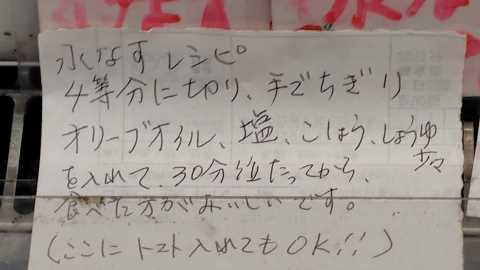 水なす レシピ
4等分に切り、手でちぎり
オリーブオイル、塩、こしょう、しょうゆ
少々
を入れて、30分位たってから、
食べた方がおいしいです。
(ここに トマト入れても OK!!)